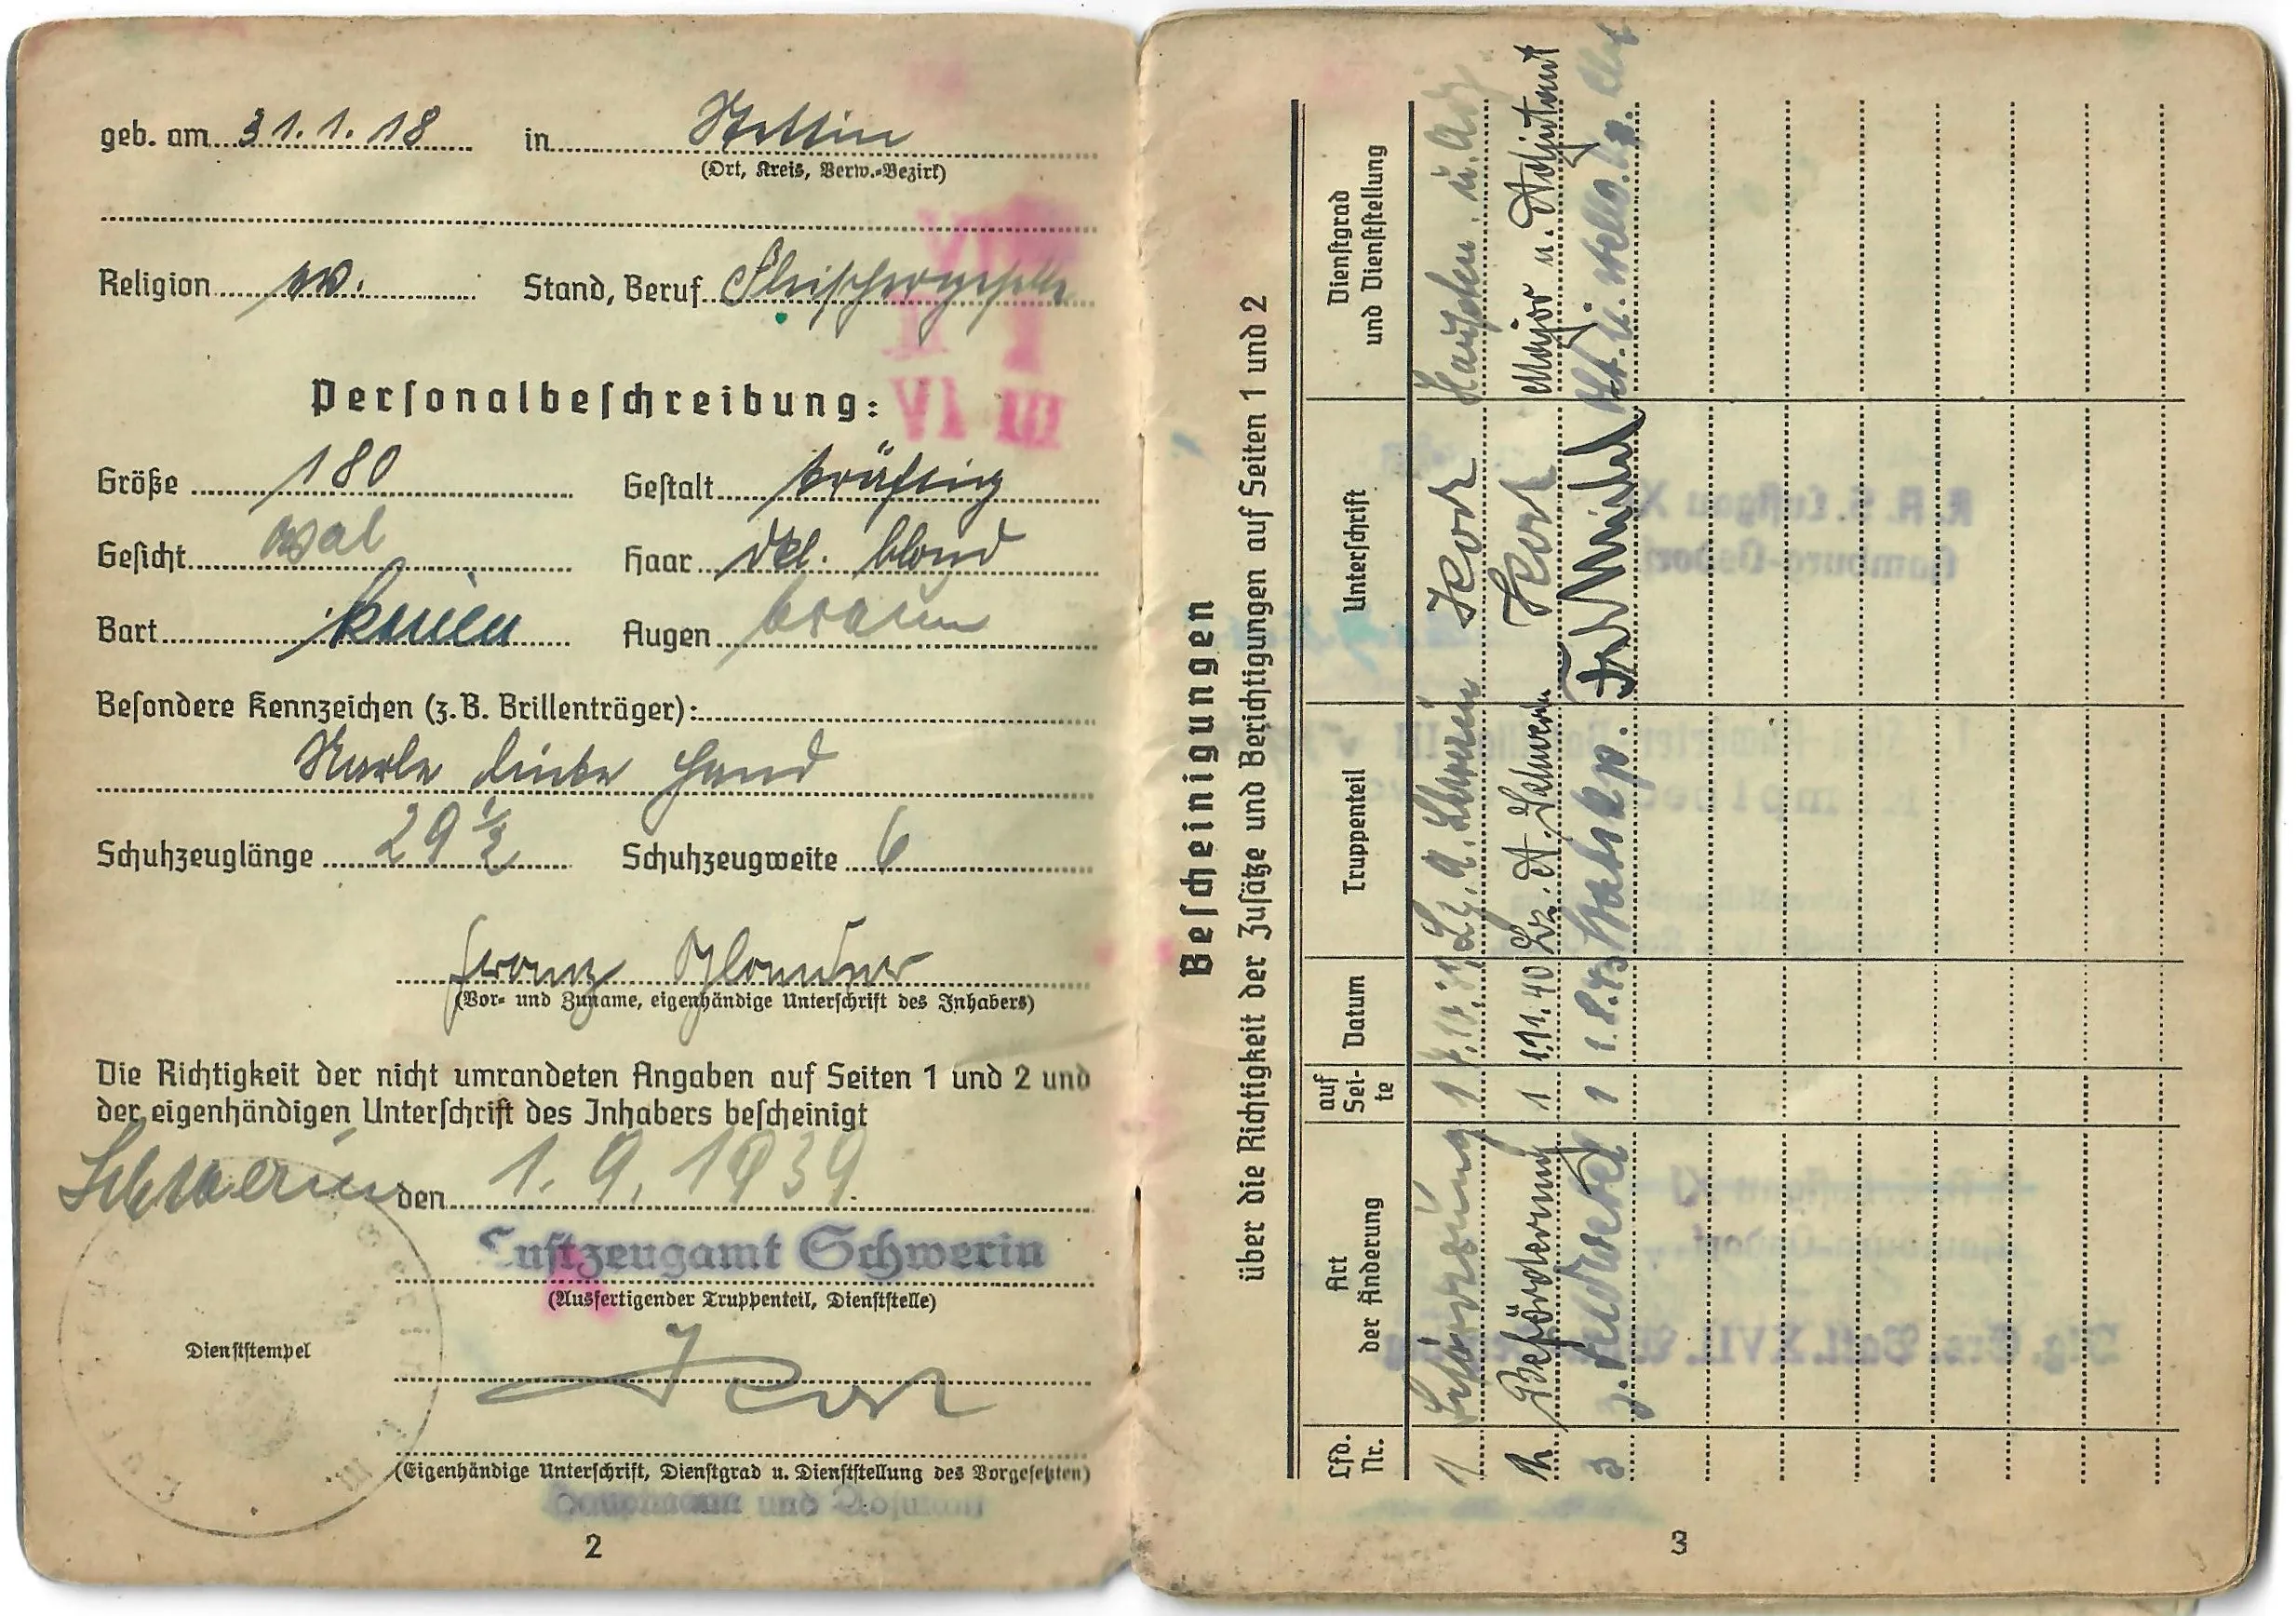 geb. am 31.1.18 in Stettin
(Ort, Kreis, Verw.-Bezirk)
Religion ev. Stand, Beruf Fleischergeselle
Personalbeschreibung:
Größe 180 Gestalt kräftig
Gesicht oval Haar dkl. blond
Bart keinen Augen braun
Besondere Kennzeichen (z. B. Brillenträger):
Narbe linke Hand
Schuhzeuglänge 29 ½ Schuhzeugweite 6
Franz
(Vor- und Zuname, eigenhändige Unterschrift des Inhabers)
Die Richtigkeit der nicht umrandeten Angaben auf Seiten 1 und 2 und
der eigenhändigen Unterschrift des Inhabers bescheinigt
Schwerin den 1. 9. 1939
Luftzeugamt Schwerin
(Ausfertigender Truppenteil, Dienststelle)
Dienststempel
(Eigenhändige Unterschrift, Dienstgrad u. Dienststellung des Vorgesetzten)
Hauptmann und Adjutant
2
Bescheinigungen
über die Richtigkeit der Zusätze und Berichtigungen auf Seiten 1 und 2
Lfd. Nr. Art der Änderung auf Seite Datum Truppenteil Unterschrift Dienstgrad und Dienststellung
1 1 Schwerin u. Adj.
2 Beförderung 1 1.11.40 Lz. A. Schwerin Major u. Adjutant
3 z. Feldwebel 1 1.8.43 Stabskp.
3